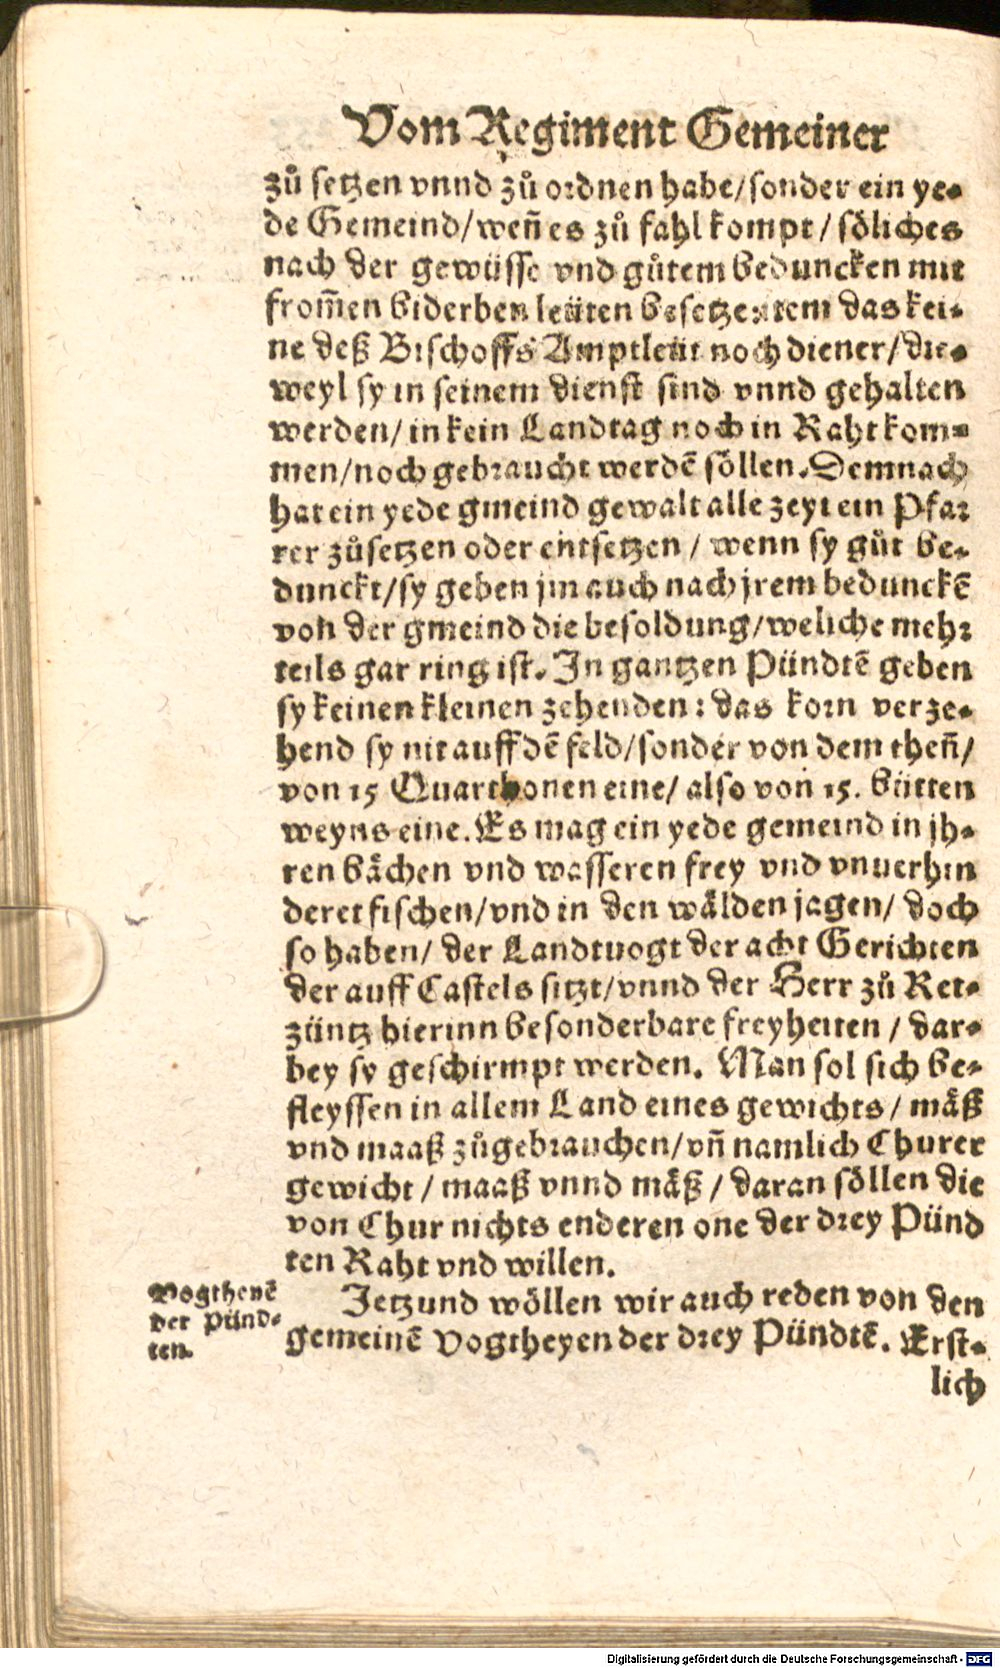 Vom Regiment Gemeiner
zů setzen vnnd zů ordnen habe/sonder ein ye-
de Gemeind/weñ es zů fahl kompt/ söliches
nach der gewüsse vnd gůtem beduncken mit
from̃en biderben leüten besetze: item das kei-
ne deß Bischoffs Amptleüt noch diener/die-
weyl sy in seinem dienst sind vnnd gehalten
werden/ in kein Landtag noch in Raht kom-
men/noch gebraucht werdẽ söllen. Demnach
hat ein yede gmeind gewalt alle zeyt ein Pfar
rer zůsetzen oder entsetzen / wenn sy gůt be-
dunckt/sy geben jm auch nach jrem bedunckẽ
von der gmeind die besoldung/weliche mehr
teils gar ring ist. In gantzen Pündtẽ geben
sy keinen kleinen zehenden: das korn verze-
hend sy nit auff dẽ feld/sonder von dem theñ/
von 15 Quarthonen eine/ also von 15. bütten
weyns eine. Es mag ein yede gemeind in jh-
ren bächen vnd wasseren frey vnd vnuerhin
deret fischen/vnd in den wälden jagen/ doch
so haben/ der Landtuogt der acht Gerichten
der auff Castels sitzt/vnnd der Herr zů Ret-
züntz hierinn besonderbare freyheiten / dar-
bey sy geschirmpt werden. Man sol sich be-
fleyssen in allem Land eines gewichts/ mäß
vnd maaß zůgebrauchen/vñ namlich Churer
gewicht / maaß vnnd mäß / daran söllen die
von Chur nichts enderen one der drey Pünd
ten Raht vnd willen.
Vogtheyẽ
der Pünd-
ten.
Jetzund wöllen wir auch reden von den
gemeinẽ Vogtheyen der drey Pündtẽ. Erst-
lich
Digitalisierung gefördert durch die Deutsche Forschungsgemeinschaft - DFG